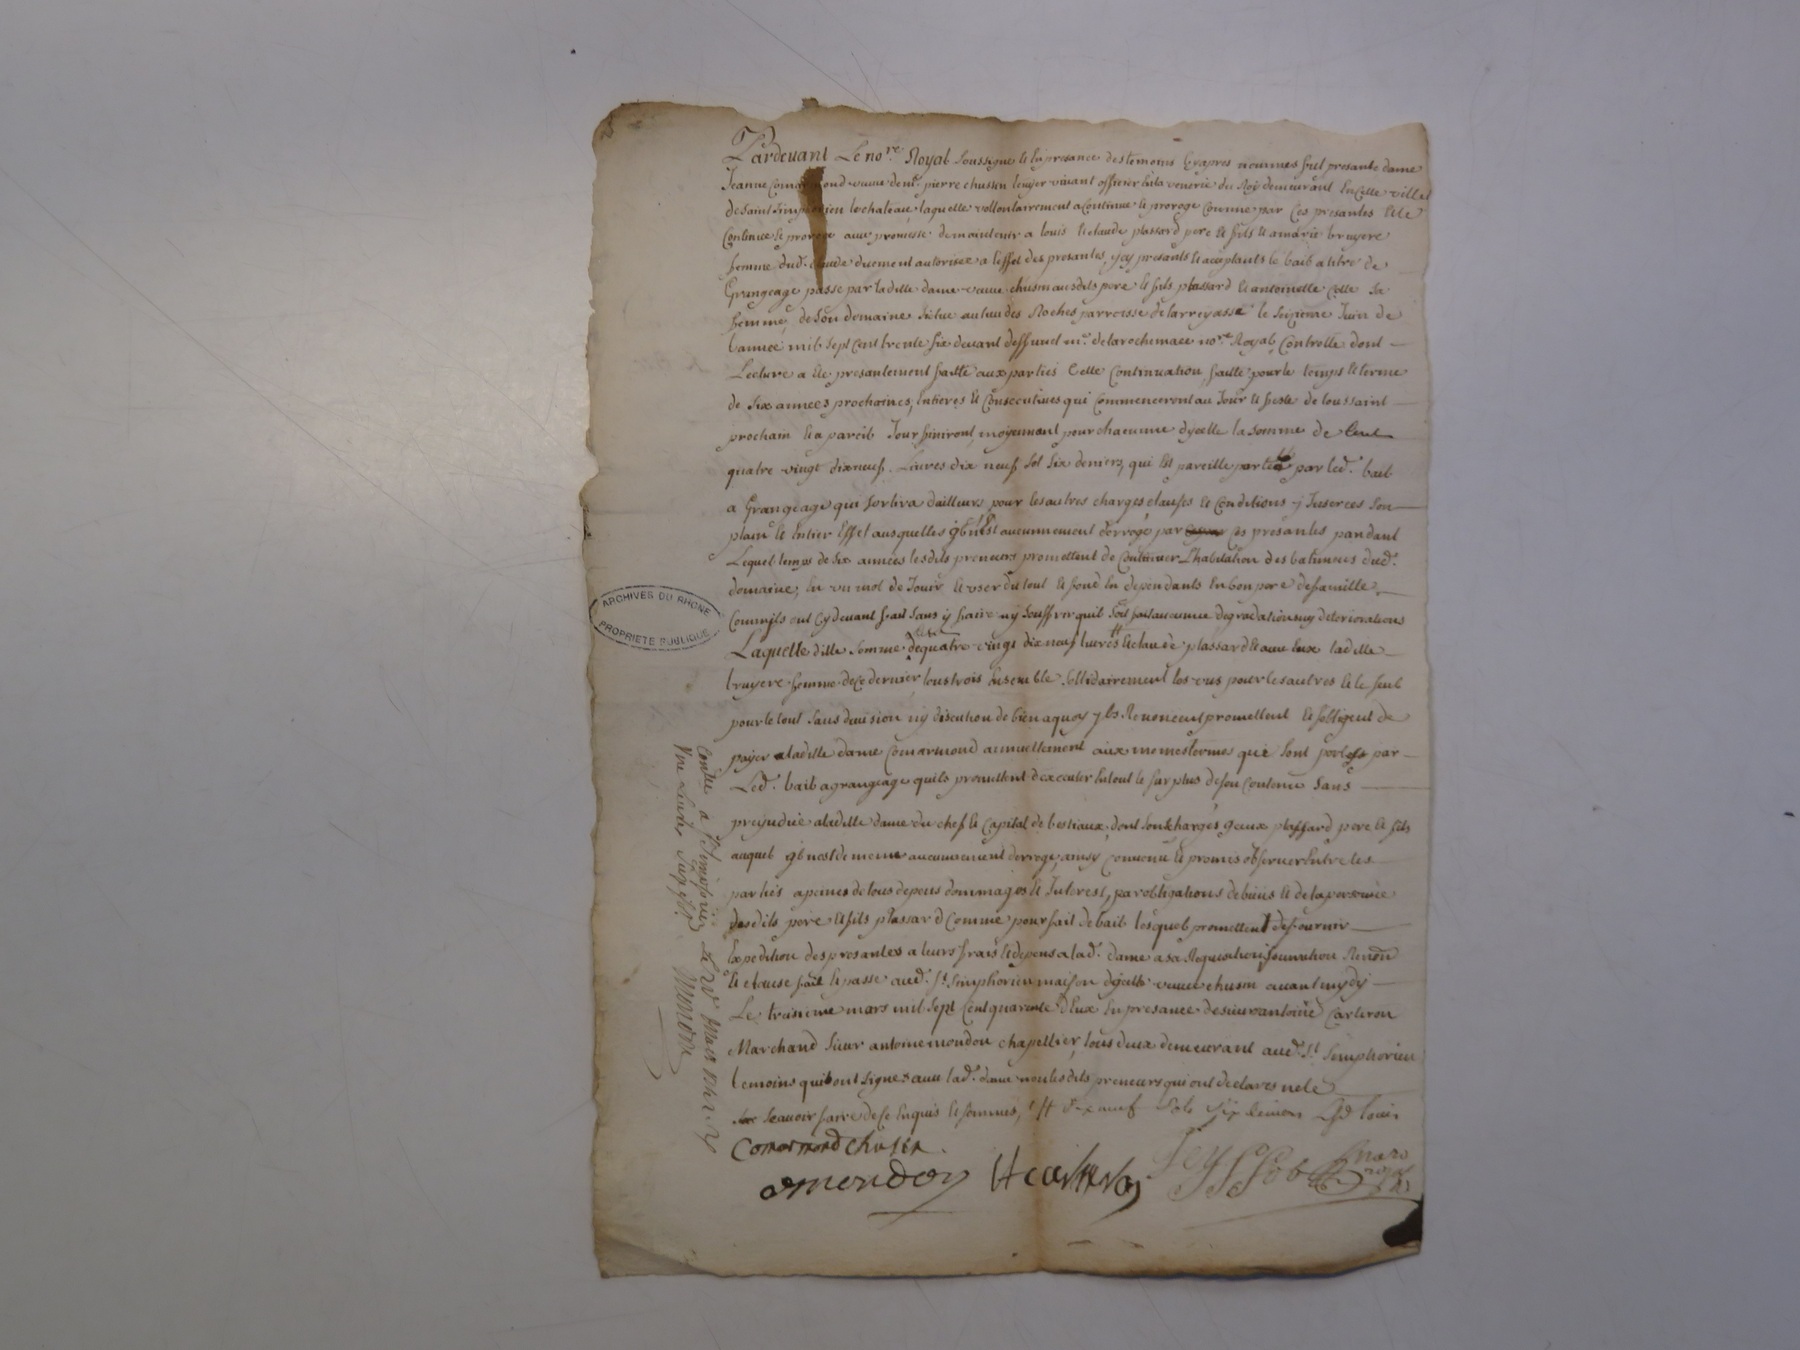 Pardevant Le nore Royal soussigné et en presance des temoins cy apres nommes fut presante dame
Jeanne Comarmond veuve de mr pierre chusin ecuyer vivant officier en la venerie du Roy demeurant en cette ville
de saint simphorien le chateau laquelle vollontairement a continué et prorogé comme par ces presantes elle
continue et proroge avec promesse de maintenir a louis et claude plassard pere et fils et a marie bruyere
femme dudt claude duement autorisée a leffet des presantes, icy presants et acceptants le bail a titre de
Grangeage passé par laditte dame veuve chusin ausdits pere et fils plassard et antoinette colle sa
femme, de son domaine situé au lieu des Roches parroisse de larreyasse le seizieme Juin de
l'année mil sept cent trente six devant deffunct me delarochemace nore Royal Controllé dont
Lecture a été presantement faitte aux parties Cette Continuation faitte pour le temps et terme
de six années prochaines, entieres et Consecutives qui Commenceront au Jour et feste de toussaint
prochain et a pareil Jour finiront, moyennant pour chacunne d'ycelle la somme de Cent
quatre vingt dix neuf Livres dix neuf sol six deniers, qui est pareille portée par led. bail
a Grangeage qui sortira dailleurs pour les autres charges clauses et Conditions y Inserées son
plain et Entier Effet ausquelles il n'est aucunnement derrogé par ces presantes pandant
Lequel temps de six années lesdits preneurs promettent de Continuer L'habitation des batiments dud.
domaine, en un mot de Jouir et user du tout et fond en dependants en bon pere de famille
Comm'ils ont cy devant fait sans y faire ny souffrir quil soit fait aucunne degradations ny deteriorations
Laquelle ditte somme de cent quatre vingt dix neuf livres et claude plassard et avec eux laditte
bruyere femme de ce dernier tous trois ensemble sollidairement les uns pour les autres et le seul
pour le tout sans division ny discution de bien a quoy ils Renoncent promettent et s'obligent de
payer a laditte dame Comarmond annuellement aux memes termes que sont portés par
Led. bail a grangeage quils promettent d'executer en tout le surplus de son Contenu sans
prejudice a laditte dame du chef et Capital de bestiaux dont sont chargés yceux plassard pere et fils
auquel il n'est de meme aucunnement derrogé, ainsy convenu et promis observer Entre les
parties a peines de tous depens dommages et Interest, par obligations de biens et de la personne
desdits pere et fils plassard Comme pour fait de bail lesquels promettent de fournir
Expedition des presantes a leurs frais et depens a lad. dame a sa Requisition, soumition Renon
et clause fait et passé aud. St Simphorien maison d'ycelle veuve chusin avant mydy
Le troisieme mars mil sept Cent quarante deux en presance de sieur antoine Carteron
Marchand sieur antoine mondon chapellier, tous deux demeurant aud. St Simphorien
temoins qui ont signés avec lad. dame non lesdits preneurs qui ont declarés ne le
scavoir faire de ce enquis et sommés, dix neuf sols six deniers led louis
Comarmond Chusin
amondon
ARCHIVES DU RHONE
PROPRIETE PUBLIQUE